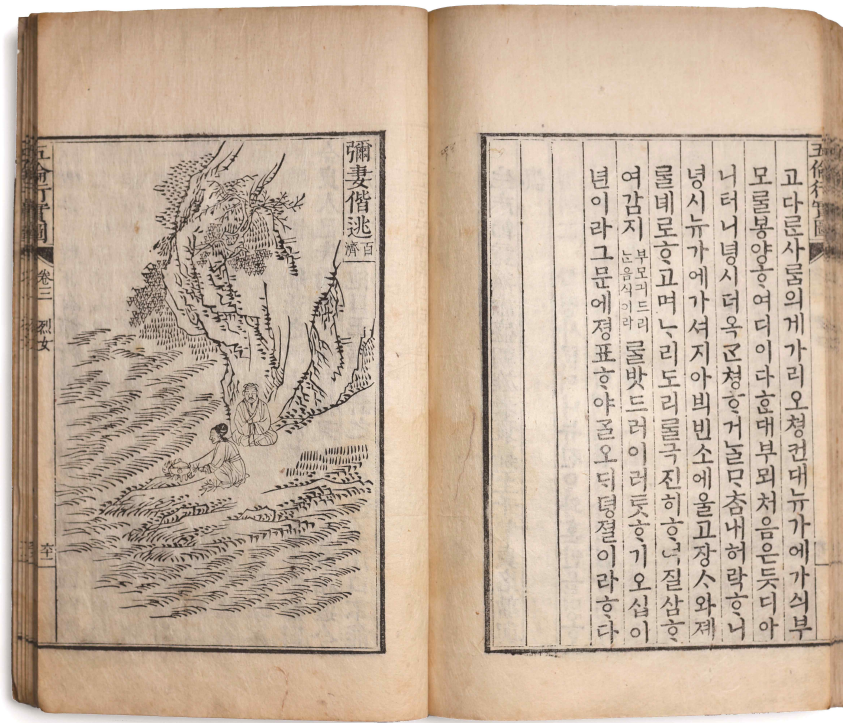 五倫行實圖
고다ᄅᆞᆫ사ᄅᆞᆷ의게가리오쳥컨대뉴가에가싀부
모ᄅᆞᆯ봉양ᄒᆞ여디이다ᄒᆞᆫ대부뫼처음은듯디아
니터니녕시더옥ᄀᆞᆫ쳥ᄒᆞ거ᄂᆞᆯᄆᆞᄎᆞᆷ내허락ᄒᆞ니
녕시뉴가에가셔지아븨빈소에울고장ᄉᆞ와졔
ᄅᆞᆯ녜로ᄒᆞ고며ᄂᆞ리도리ᄅᆞᆯ극진히ᄒᆞ며질삼ᄒᆞ
여감지부모긔드리ᄂᆞᆫ음식이라ᄅᆞᆯ밧드러이러ᄐᆞᆺᄒᆞ기오십이
년이라그문에졍표ᄒᆞ야ᄀᆞᆯ오ᄃᆡ뎡졀이라ᄒᆞ다
彌妻偕逃
百濟
五倫行實圖
卷三 烈女